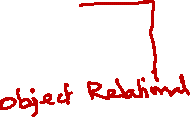 object Relational